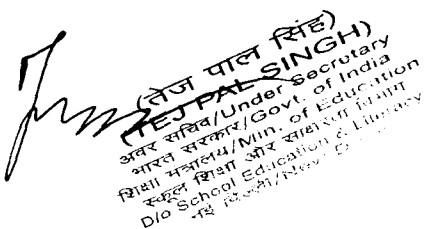 (तेज पाल सिंह)
(TEJ PAL SINGH)
अवर सचिव/Under Secretary
भारत सरकार/Govt. of India
शिक्षा मंत्रालय/Min. of Education
स्कूल शिक्षा और साक्षरता विभाग
D/o School Education & Literacy
नई दिल्ली/New